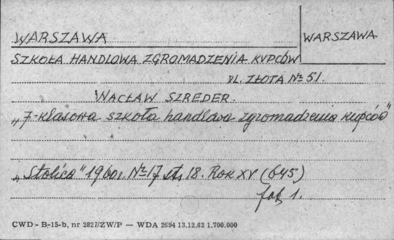 WARSZAWA
WARSZAWA
SZKOŁA HANDLOWA ZGROMADZENIA KVPCÓW
VL. ZŁOTA No 51.
WACŁAW SZREDER.
„7-klasowa szkoła handlowa zgromadzenia kupców"
„Stolica" 1960r. No 17 st. 18. Rok XV (645)
fot 1.
CWD - B-15-b, nr 2827/ZW/P — WDA 2694 13.12.62 1.700.000